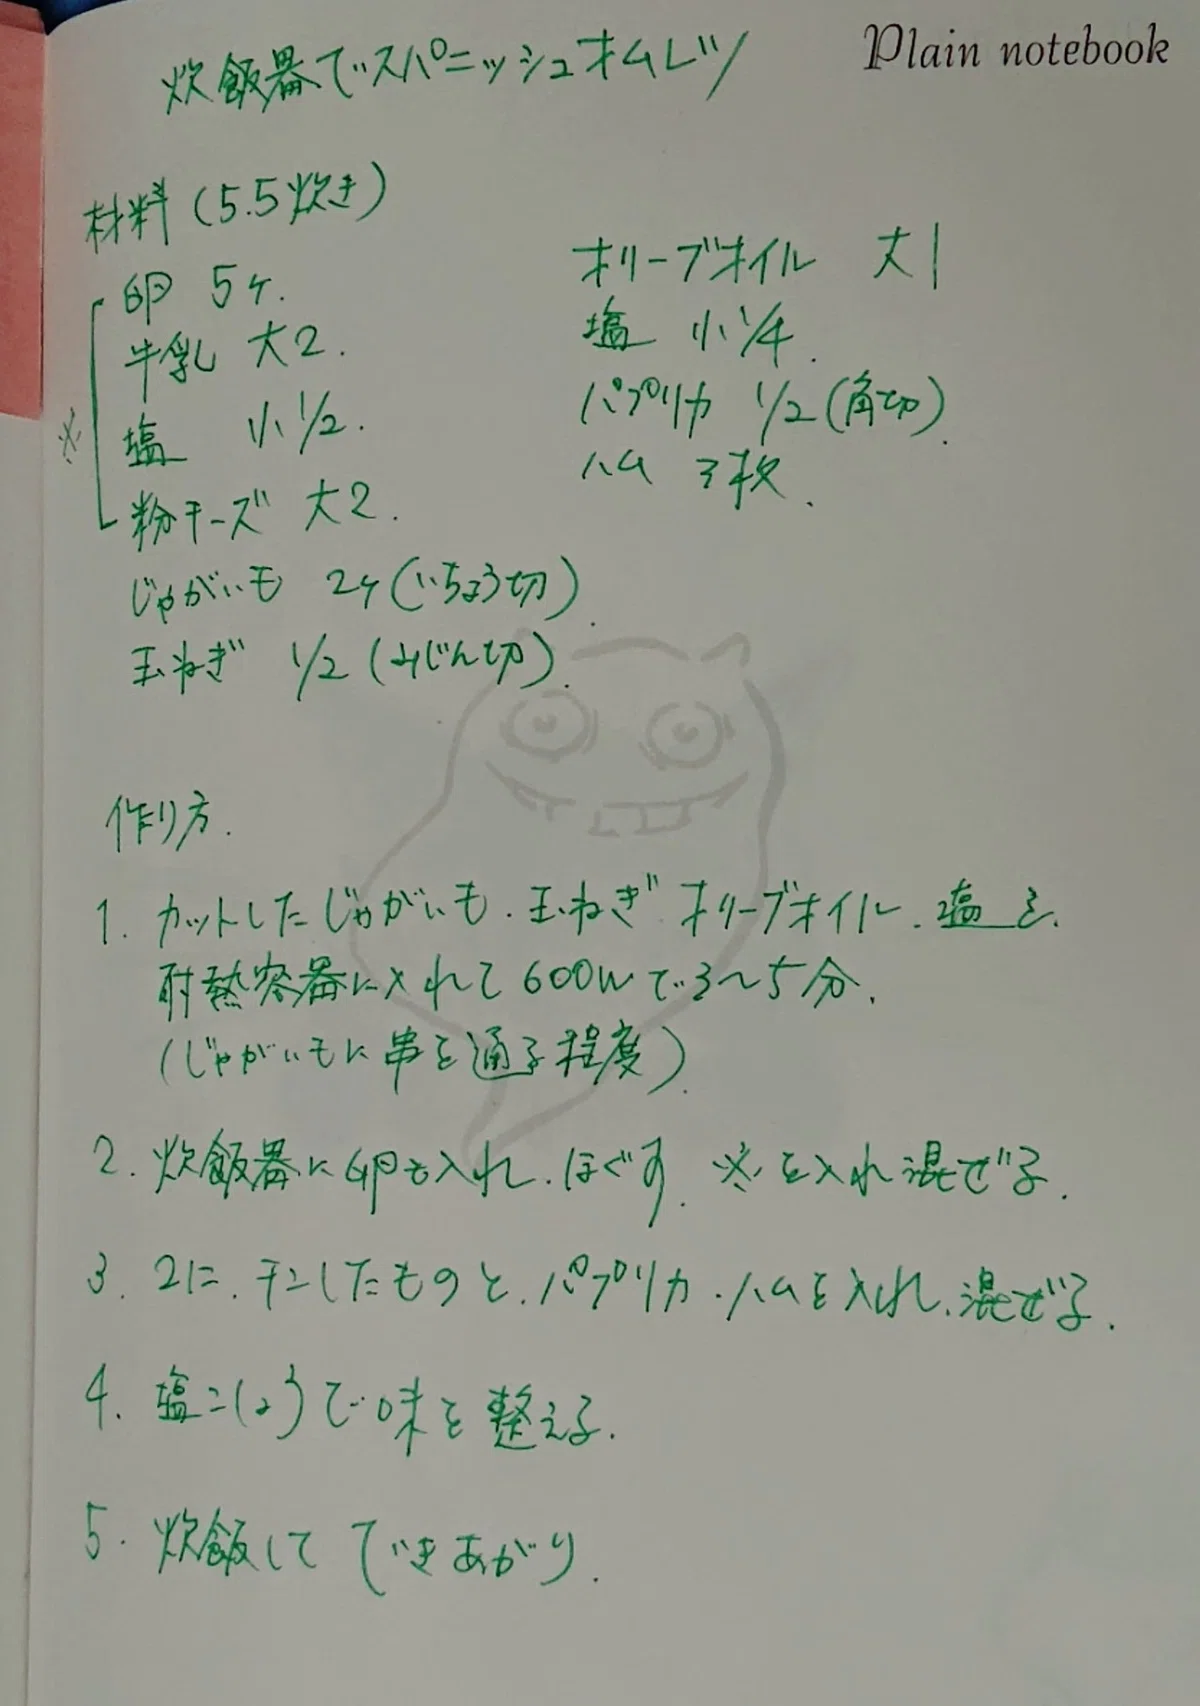 Plain notebook
炊飯器でスパニッシュオムレツ
材料(5.5炊き)
卵 5ヶ.
牛乳 大2.
塩 小1/2.
粉チーズ 大2.
※
じゃがいも 2ヶ(いちょう切).
玉ねぎ 1/2(みじん切).
オリーブオイル 大1
塩 小1/4.
パプリカ 1/2(角切).
ハム 3枚.
作り方.
1. カットしたじゃがいも.玉ねぎ オリーブオイル.塩を.
耐熱容器に入れて600Wで3〜5分.
(じゃがいもに串を通る程度).
2. 炊飯器に卵を入れ.ほぐす.※を入れ混ぜる.
3. 2に.チンしたものと.パプリカ.ハムを入れ.混ぜる.
4. 塩こしょうで味を整える.
5. 炊飯して できあがり.